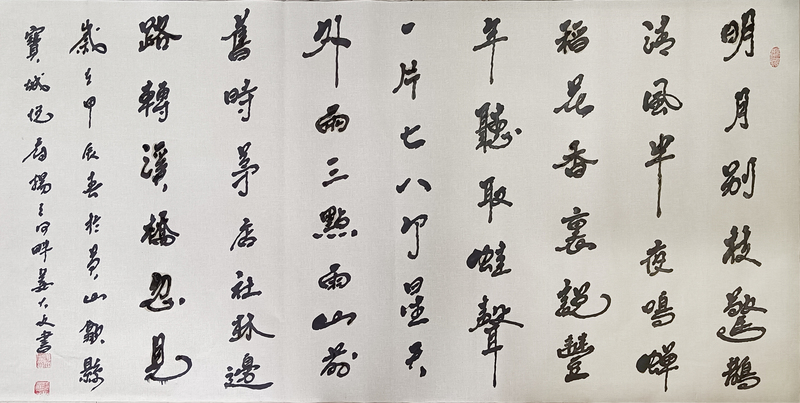 明月别枝驚鵲
清風半夜鳴蟬
稻花香裏說豐
年聽取蛙聲
一片七八个星天
外兩三點雨山前
舊時茅店社林邊
路轉溪橋忽見
歲在甲辰春於黄山歙縣
揚之河畔姜大文書